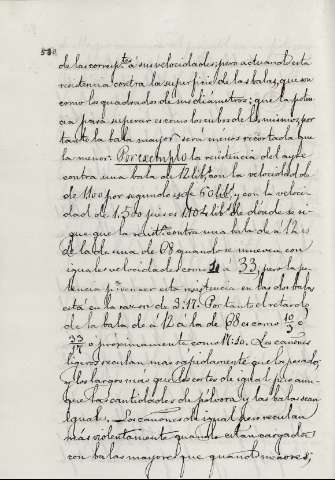 580
de las corresp.tes á sus velocidades; pero actuando esta
resistencia contra la superficie de las balas, que son
como los quadrados de sus diámetros; que la poten-
cia para superar es como los cubos de los mismos; por
tanto la bala mayor será menos retardada que
la menor. Por exemplo la resistencia del ayre
contra una bala de 12 lib.s con la velocidad de
de 1100 por segundo es de 60 lib.s y con la veloci-
dad de 1500 pies es lib.s de donde se si-
gue que la resist.a contra una bala de á 12 es
de la de una de 68 quando se mueven con
iguales velocidades como 1 á 33, pero la po-
tencia p.a vencer esta resistencia en las dos balas
está en la razon de 3:17. Por tanto el retardo
de la bala de á 12 á la de 68 es como 10/3 á
33/17 o próximamente como 17:10. Los cañones
ligeros reculan mas rapidamente que los pesados
y los largos más que los cortos de igual peso aun-
que las cantidades de pólvora y las balas sean
iguales. Los cañones de igual peso reculan
más violentamente quando están cargados
con balas mayores que quando menores;